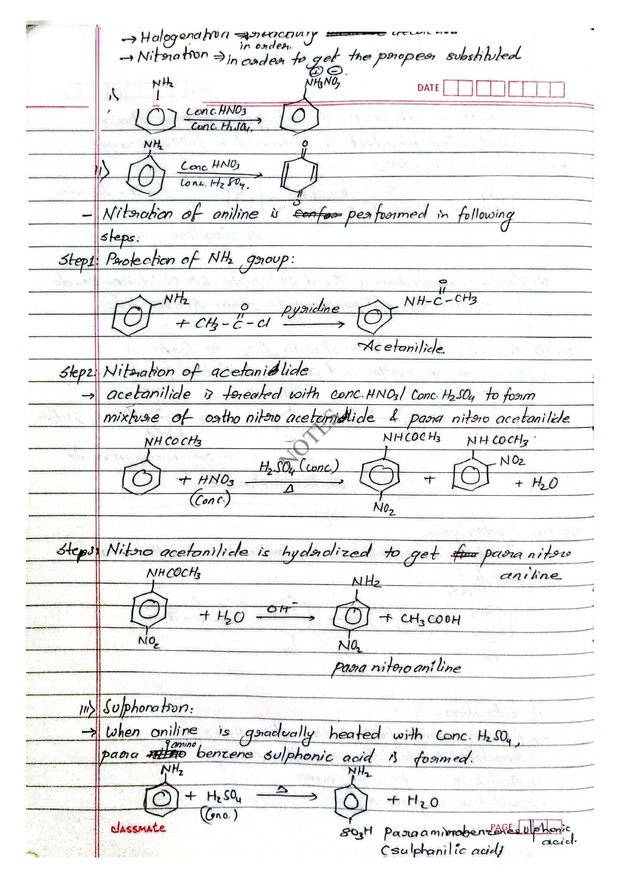 → Halogenation ⇒ reactivity
in order.
→ Nitration ⇒ in order to get the proper substituted
DATE
i)
NH2
conc.HNO3
Conc. H2SO4.
⊕ ⊖
NH3NO3
ii)
NH2
Conc HNO3
Conc. H2SO4.
O
O
- Nitration of aniline is performed in following
steps.
Step1: Protection of NH2 group:
NH2 + CH3-C-Cl pyridine NH-C-CH3
O
O
Acetanilide.
Step2: Nitration of acetanilide
→ acetanilide is treated with conc.HNO3/ Conc. H2SO4 to form
mixture of ortho nitro acetanilide & para nitro acetanilide
NHCOCH3 NHCOCH3 NHCOCH3
+ HNO3 H2SO4 (conc.) + NO2 + H2O
(Conc.) Δ
NO2
NOTES
Step3: Nitro acetanilide is hydrolized to get para nitro
aniline
NHCOCH3 NH2
+ H2O OH⁻ + CH3COOH
NO2 NO2
para nitroaniline
iii) Sulphonation:
→ When aniline is gradually heated with Conc. H2SO4,
para amino benzene sulphonic acid is formed.
NH2 NH2
+ H2SO4 Δ + H2O
(Conc.)
SO3H Paraaminobenzenesulphonic
acid.
(sulphanilic acid)
classmate
PAGE